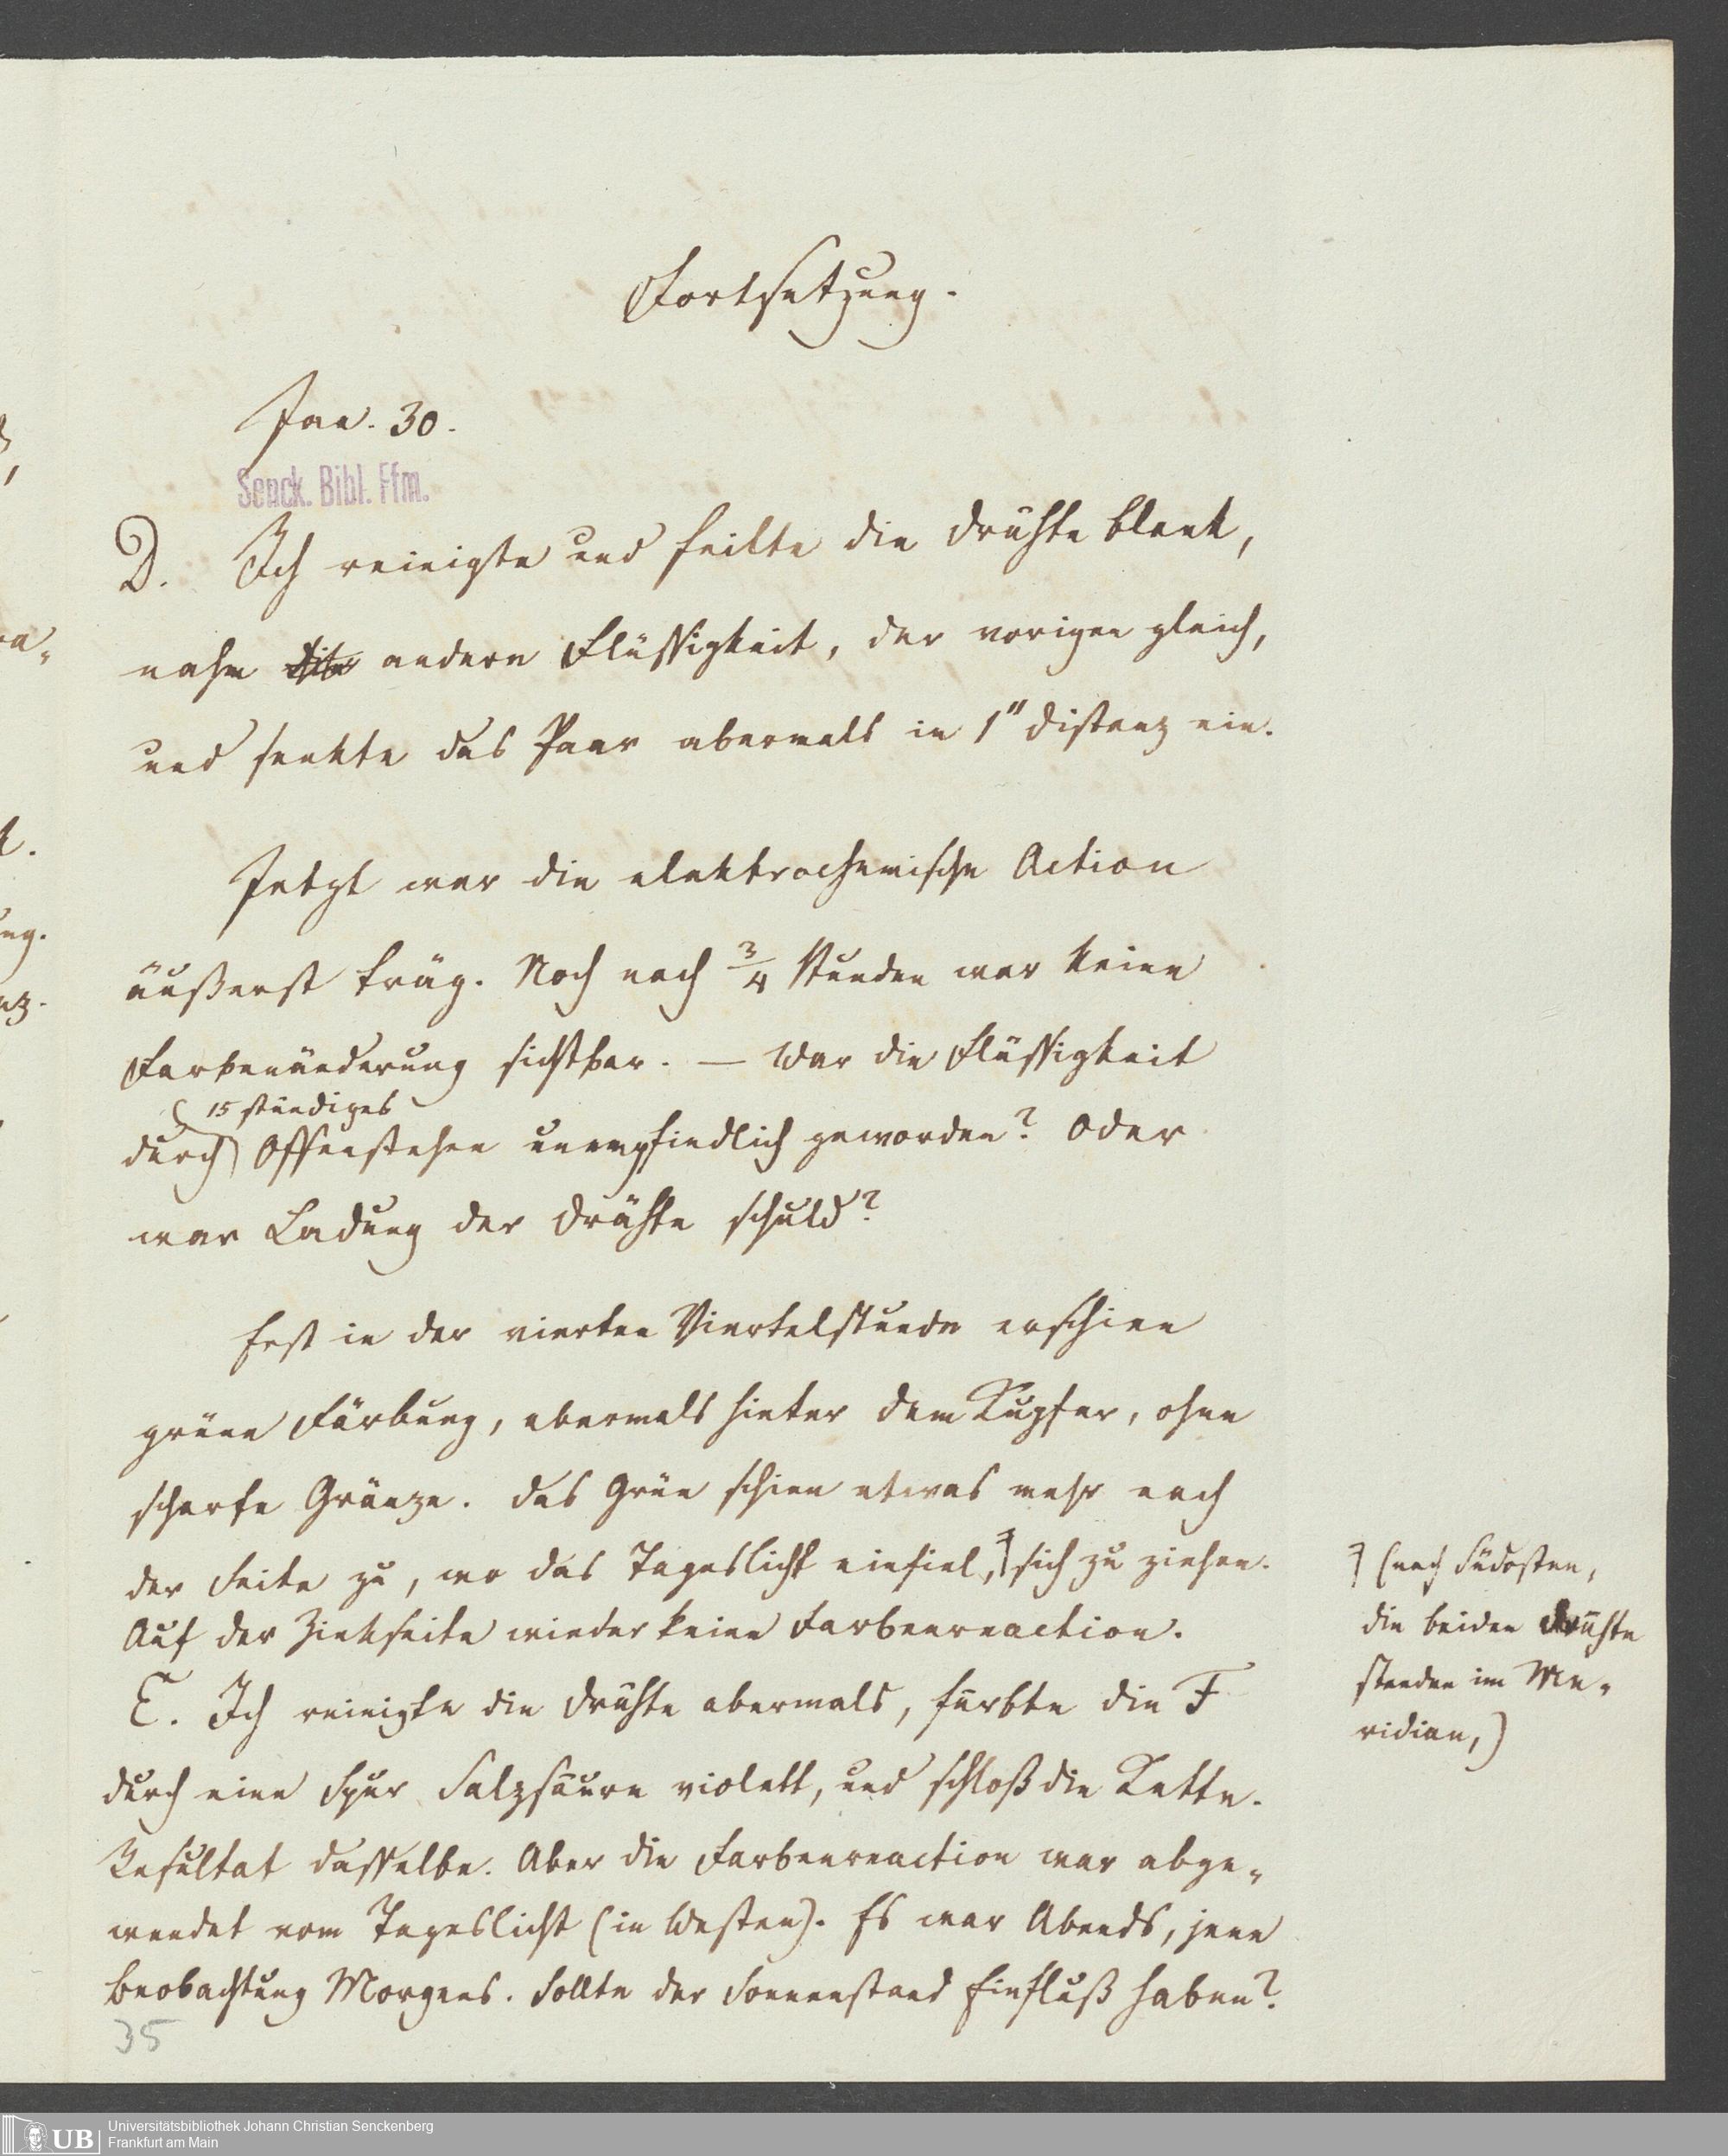 Fortsetzung.
Jan. 30.
Senck. Bibl. Ffm.
D. Ich reinigte und feilte die Drähte blank,
nahm andere Flüssigkeit, der vorigen gleich,
und senkte das Paar abermals in 1" Distanz ein.
Jetzt war die elektrochemische Action
äußerst träg. Noch nach 3/4 Stunden war keine
Farbenänderung sichtbar. — War die Flüssigkeit
15 stündiges
durch Offenstehen unempfindlich geworden? Oder
war Ladung der Drähte schuld?
Erst in der vierten Viertelstunde erschien
grüne Färbung, abermals hinter dem Kupfer, ohne
scharfe Gränze. Das Grün schien etwas mehr nach
der Seite zu, wo das Tageslicht einfiel, sich zu ziehen.
Auf der Zinkseite wieder keine Farbenreaction.
E. Ich reinigte die Drähte abermals, färbte die F
durch eine Spur Salzsäure violett, und schloß die Kette.
Resultat dasselbe. Aber die Farbenreaction war abge-
wendet vom Tageslicht (in Westen). Es war Abends, jene
Beobachtung Morgens. Sollte der Sonnenstand Einfluß haben?
(nach Südosten,
die beiden Drähte
standen im Me-
ridian,)
35
UB Universitätsbibliothek Johann Christian Senckenberg
Frankfurt am Main